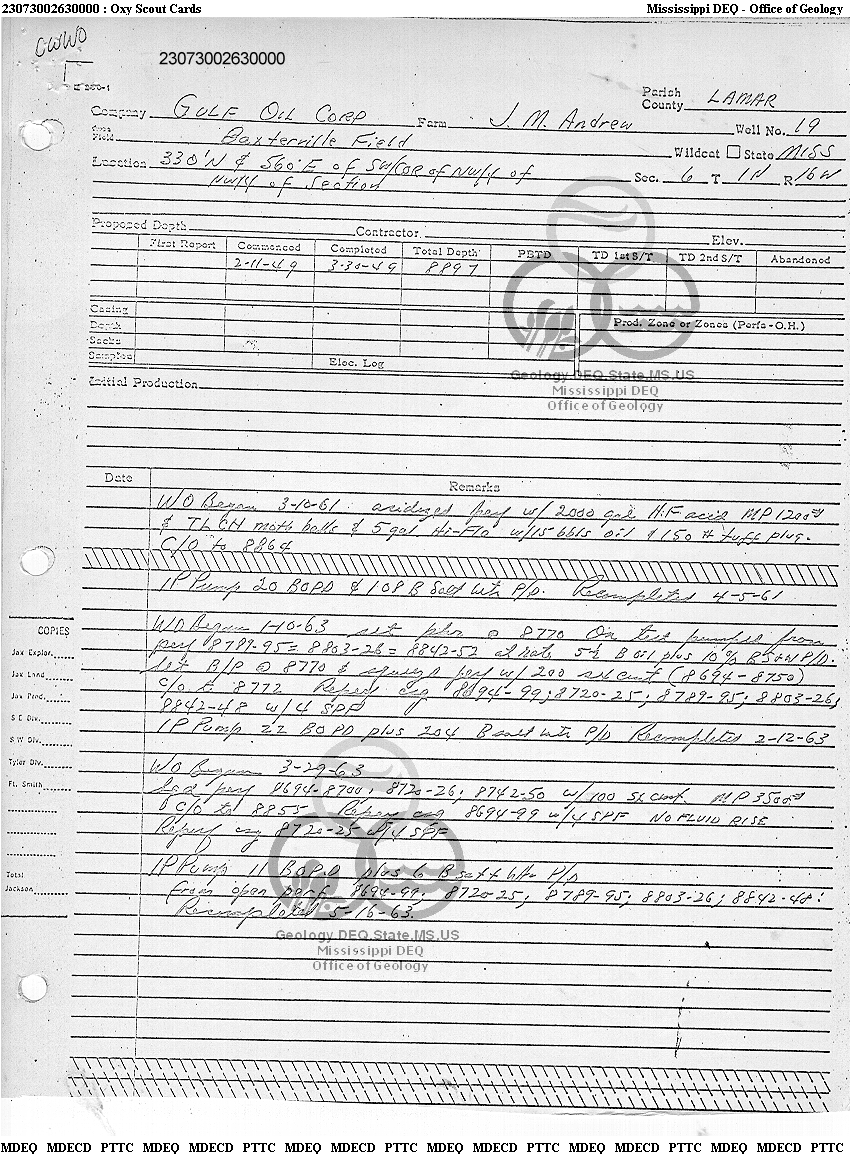 23073002630000 : Oxy Scout Cards Mississippi DEQ - Office of Geology
CWWO
23073002630000
Company GULF OIL CORP Farm J. M. Andrew Parish County LAMAR
Well No. 19
Field Baxterville Field Wildcat State MISS
Location 330'N & 560'E of SW/COR of NW/4 of Sec. 6 T. 1N R 16W
NW/4 of Section
Proposed Depth Contractor Elev.
First Report Commenced Completed Total Depth PBTD TD 1st S/T TD 2nd S/T Abandoned
2-11-49 3-30-49 8897
Casing
Depth Prod. Zone or Zones (Perfs - O.H.)
Sacks
Samples Elec. Log
Initial Production
Geology.DEQ.State.MS.US
Mississippi DEQ
Office of Geology
Date Remarks
W/O Began 3-10-61 acidized perf w/ 2000 gal H.F acid MP 1200#
& TLCN moth balls & 5 gal Hi-Flo w/15 bbls oil & 150 # tuff plug.
C/O to 8864
IP Pump 20 BOPD & 108 B Salt wtr P/D. Recompleted 4-5-61
W/O Began 1-10-63 set pkr @ 8770 On test pumped from
perf 8789-95 = 8803-26 = 8842-52 at rate B oil plus 10% BS&W P/D.
Set B/P @ 8770 & squeeze perf w/ 200 sk cmt (8694-8750)
C/O to 8772 Reperf csg 8694-99; 8720-25; 8789-95; 8803-26;
8842-48 w/4 SPF
IP Pump 22 BOPD plus 204 B salt wtr P/D Recompleted 2-12-63
W/O Began 3-29-63
Sqd perf 8694-8700; 8720-26; 8742-50 w/100 sk cmt. MP 3500#
C/O to 8855 Reperf csg 8694-99 w/4 SPF NO FLUID RISE
Reperf csg 8720-25 w/4 SPF
IP Pump 11 BOPD plus 6 B salt wtr P/D
from open perf 8694-99; 8720-25; 8789-95; 8803-26; 8842-48.
Recompleted 5-16-63.
COPIES
Jax Explor.
Jax Land
Jax Prod.
S E Div.
S W Div.
Tyler Div.
Ft. Smith
Total
Jackson
Geology.DEQ.State.MS.US
Mississippi DEQ
Office of Geology
MDEQ MDECD PTTC MDEQ MDECD PTTC MDEQ MDECD PTTC MDEQ MDECD PTTC MDEQ MDECD PTTC MDEQ MDECD PTTC